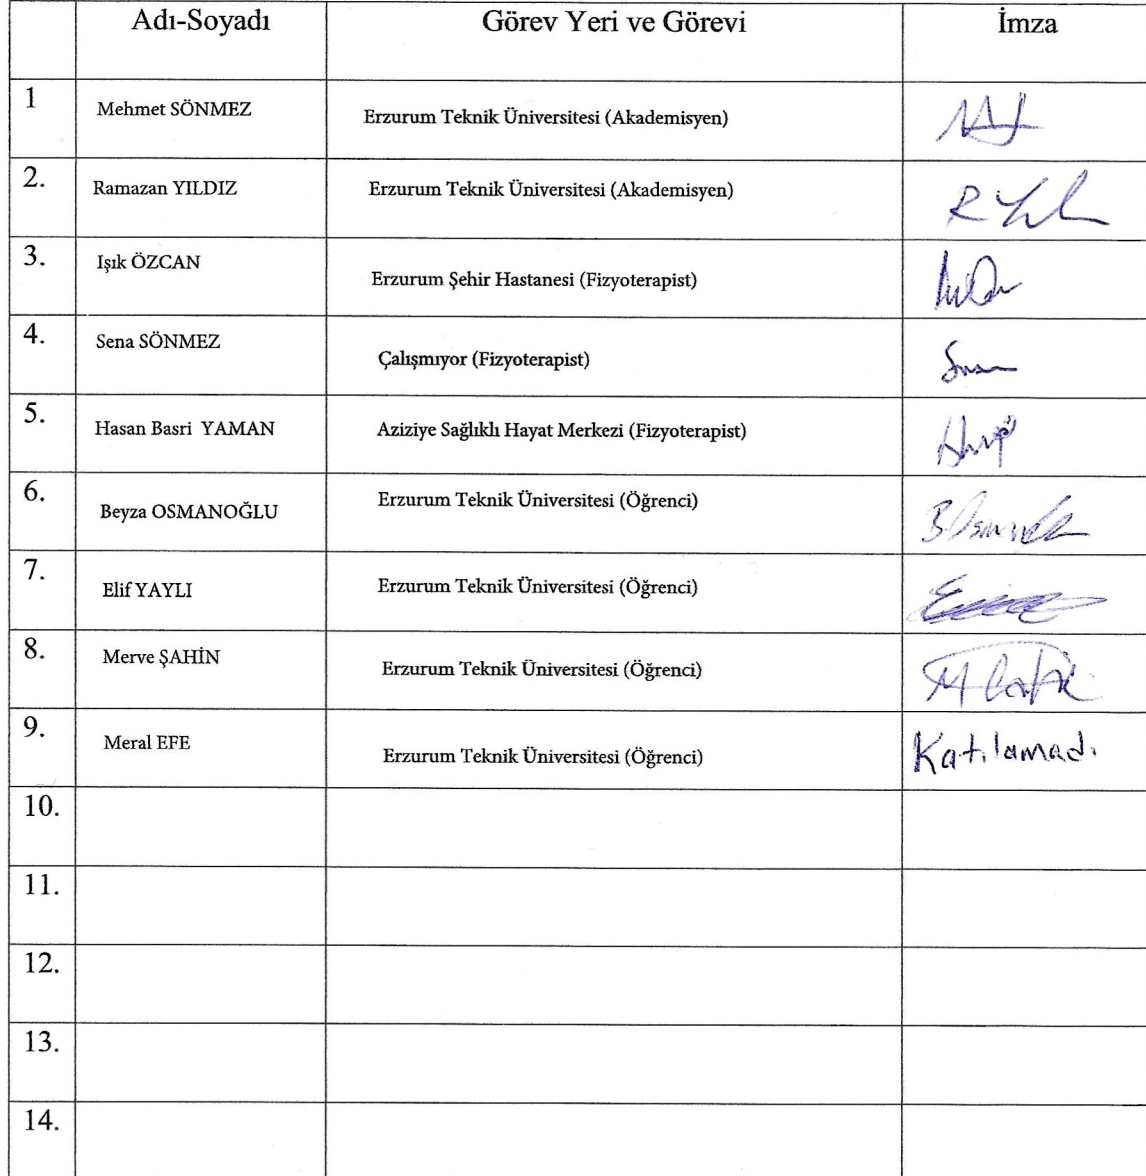 Adı-Soyadı Görev Yeri ve Görevi İmza
1 Mehmet SÖNMEZ Erzurum Teknik Üniversitesi (Akademisyen)
2. Ramazan YILDIZ Erzurum Teknik Üniversitesi (Akademisyen)
3. Işık ÖZCAN Erzurum Şehir Hastanesi (Fizyoterapist)
4. Sena SÖNMEZ Çalışmıyor (Fizyoterapist)
5. Hasan Basri YAMAN Aziziye Sağlıklı Hayat Merkezi (Fizyoterapist)
6. Beyza OSMANOĞLU Erzurum Teknik Üniversitesi (Öğrenci)
7. Elif YAYLI Erzurum Teknik Üniversitesi (Öğrenci)
8. Merve ŞAHİN Erzurum Teknik Üniversitesi (Öğrenci)
9. Meral EFE Erzurum Teknik Üniversitesi (Öğrenci) Katılamadı
10.
11.
12.
13.
14.